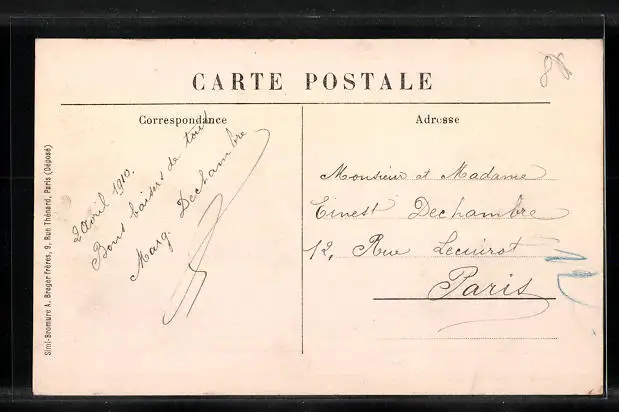 CARTE POSTALE
Correspondance
2 Avril 1910.
Bons baisers de tous
Marg. Dechambre
Adresse
Monsieur et Madame
Ernest Dechambre
12, Rue Lecuirot
Paris
Simi-Bromure A. Breger Frères, 9, Rue Thénard, Paris (Déposé)